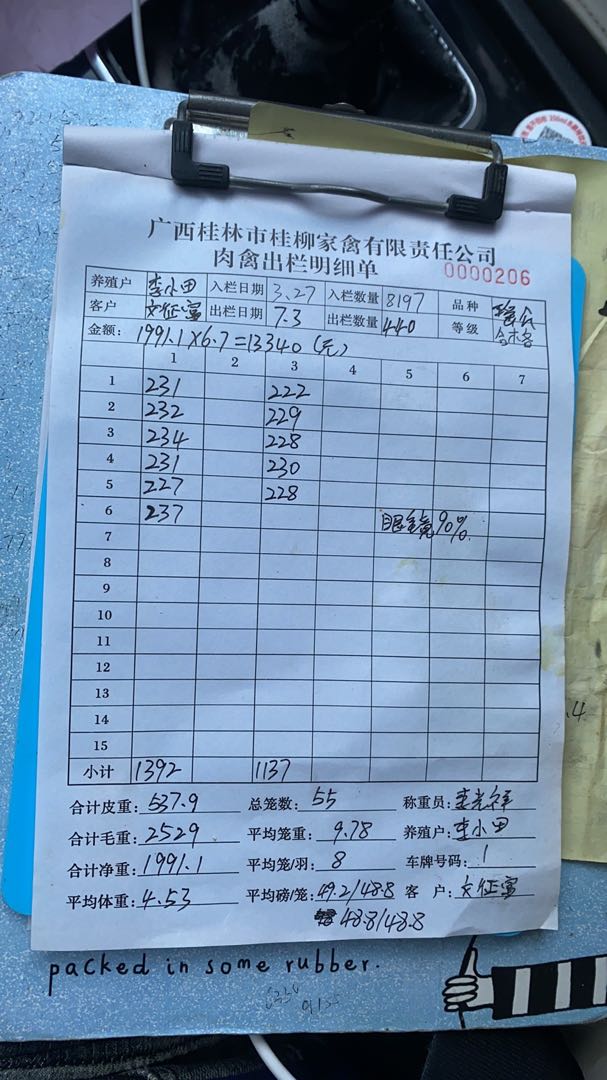 广西桂林市桂柳家禽有限责任公司
肉禽出栏明细单 0000206
养殖户 李小田 入栏日期 3.27 入栏数量 8197 品种
客户 文征富 出栏日期 7.3 出栏数量 440 等级
金额: 1991.1×6.7=13340(元)
1 2 3 4 5 6 7
1 231 222
2 232 229
3 234 228
4 231 230
5 227 228
6 237 眼镜90%
7
8
9
10
11
12
13
14
15
小计 1392 1137
合计皮重: 537.9 总笼数: 55 称重员: 李光祥
合计毛重: 2529 平均笼重: 9.78 养殖户: 李小田
合计净重: 1991.1 平均笼/羽: 8 车牌号码: 1
平均体重: 4.53 平均磅/笼: 49.2/48.8 客 户: 文征富
48.8/48.8
packed in some rubber.